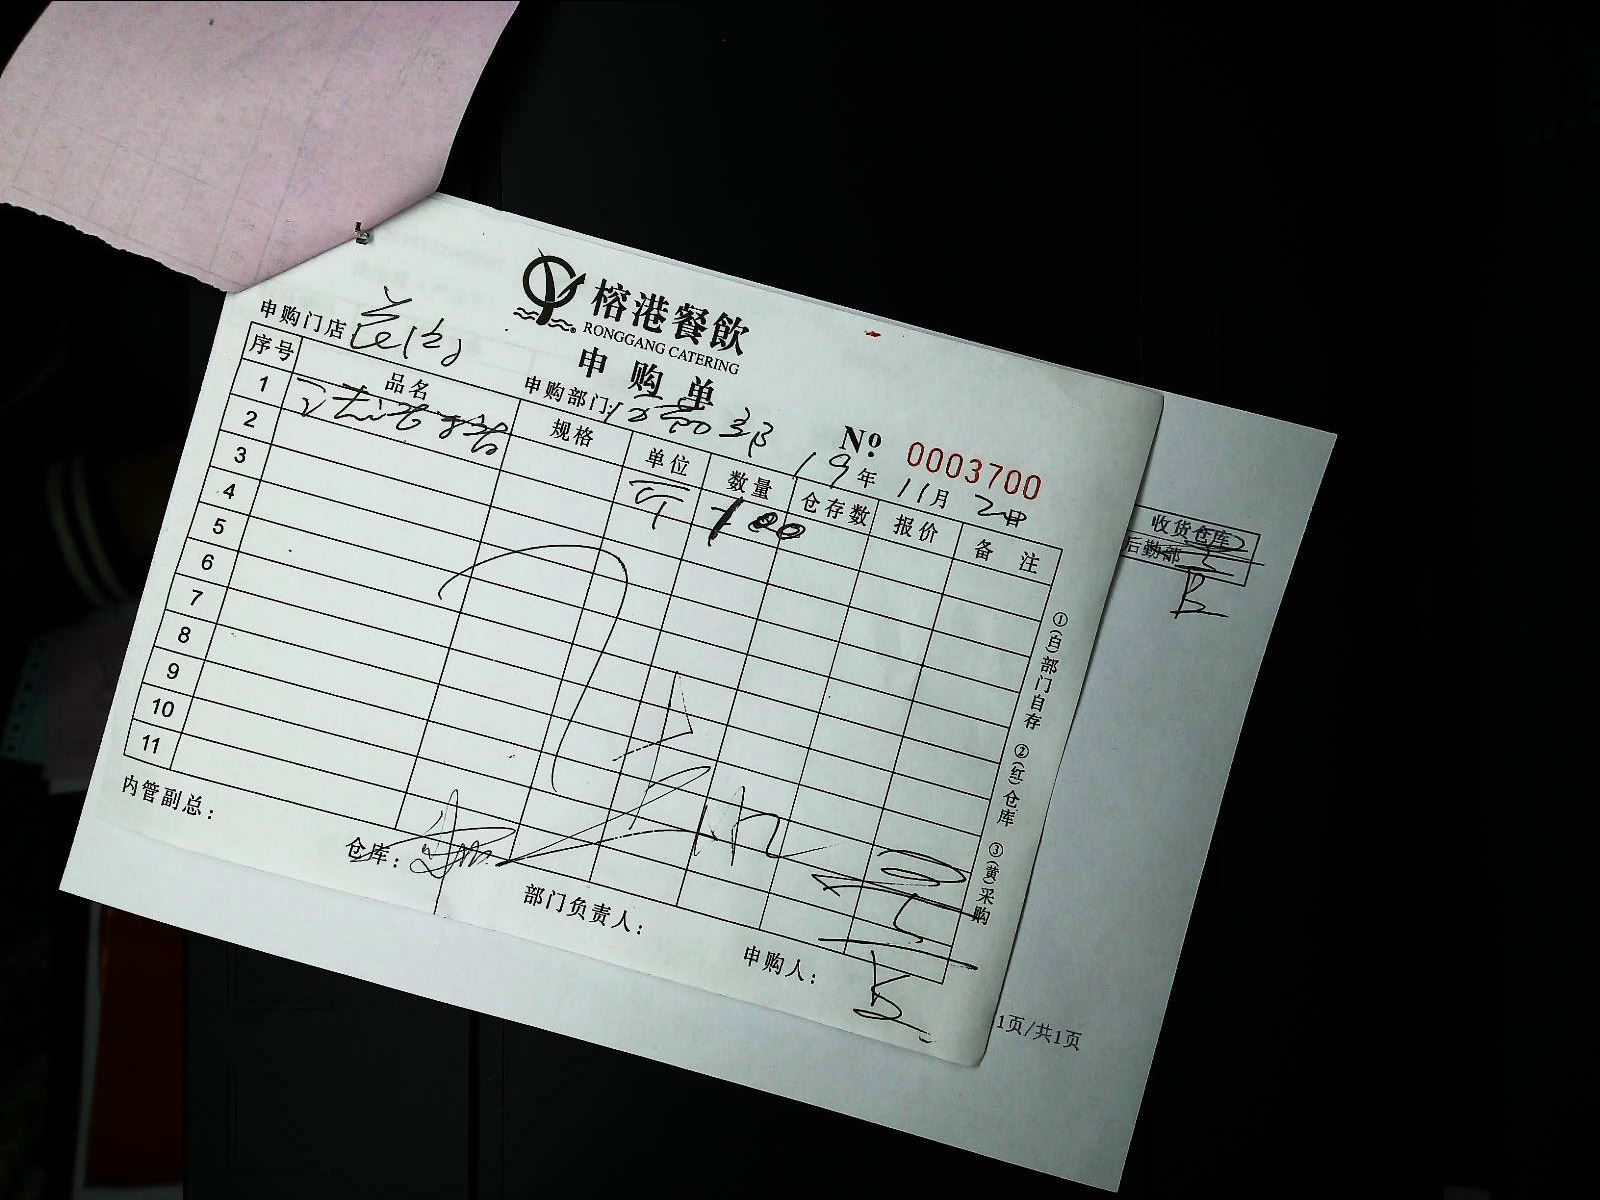 榕港餐飲
RONGGANG CATERING
申购单
申购门店
申购部门:
No 0003700
19年 11月 2日
序号 品名 规格 单位 数量 仓存数 报价 备注
1 100
2
3
4
5
6
7
8
9
10
11
①(白)部门自存 ②(红)仓库 ③(黄)采购
内管副总:
仓库:
部门负责人:
申购人:
收货仓库
后勤部
1页/共1页